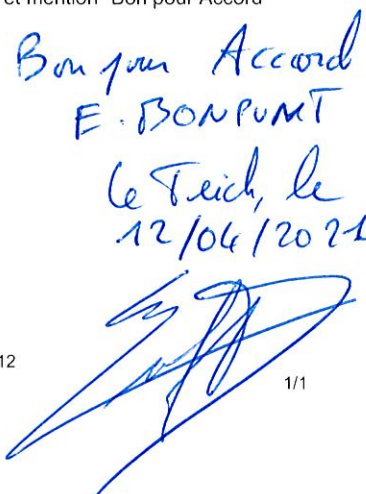 et mention "Bon pour Accord"
Bon pour Accord
E. BONPUNT
Le Teich, le
12/04/2021
12
1/1